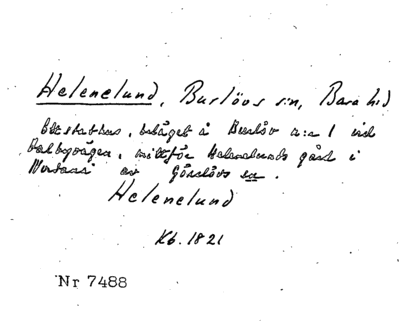 Helenelund, Burlövs sn, Bara hd
Ett stathus, beläget å Burlöv n:r 1 vid
Dalbyvägen, mittför Helenelunds gård i
av Görslövs sn.
Helenelund
Kb. 1821
Nr 7488